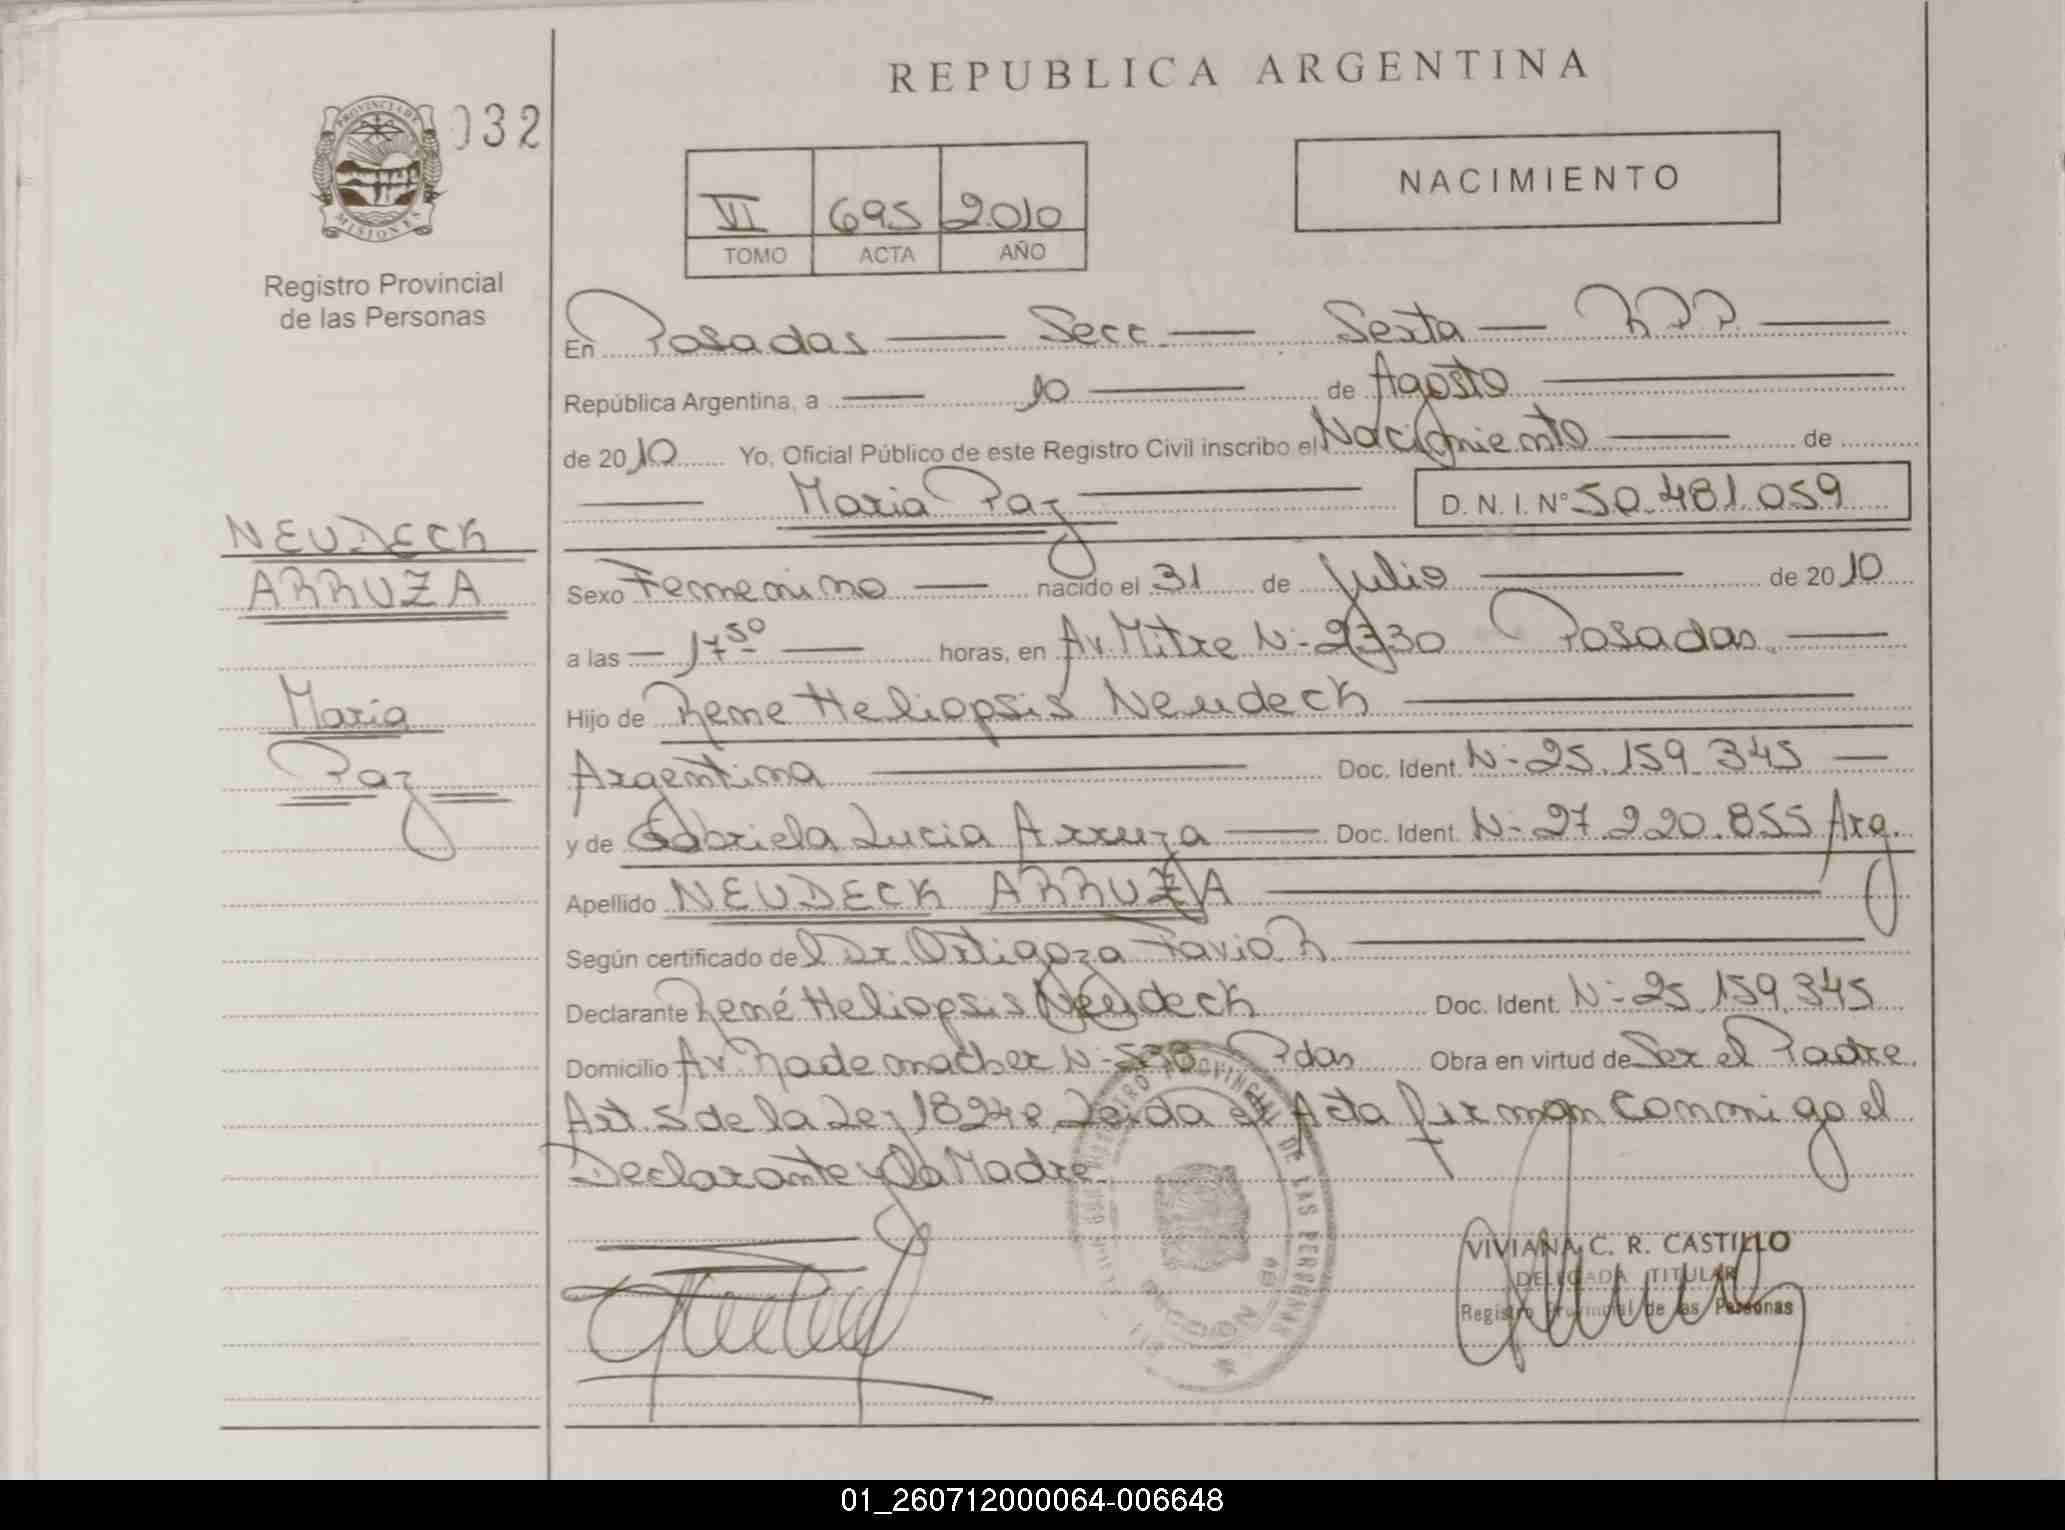 REPUBLICA ARGENTINA
032
PROVINCIA DE MISIONES
Registro Provincial
de las Personas
VI 695 2010
TOMO ACTA AÑO
NACIMIENTO
En Posadas Secc. Sexta R.P.P.
República Argentina, a 10 de Agosto
de 2010 Yo, Oficial Público de este Registro Civil inscribo el Nacimiento de
Maria Paz D. N. I. Nº 50.481.059
NEUDECK
ARRUZA
Maria
Paz
Sexo Femenino nacido el 31 de Julio de 2010
a las 17 50 horas, en Av. Mitre Nº 2330 Posadas.
Hijo de Rene Heliopsis Neudeck
Argentina Doc. Ident. Nº 25.159.345
y de Gabriela Lucia Arruza Doc. Ident. Nº 27.220.855 Arg.
Apellido NEUDECK ARRUZA
Según certificado del Dr. Ortigoza Favio R.
Declarante René Heliopsis Neudeck Doc. Ident. Nº 25.159.345
Domicilio Av. Rademacher Nº Pdas Obra en virtud de Ser el Padre.
Art. 5 de la Ley 18248 Leida el Acta firman conmigo el
Declarante y la Madre.
REGISTRO PROVINCIAL DE LAS PERSONAS
VIVIANA C. R. CASTILLO
DELEGADA TITULAR
Registro Provincial de las Personas
01_260712000064-006648